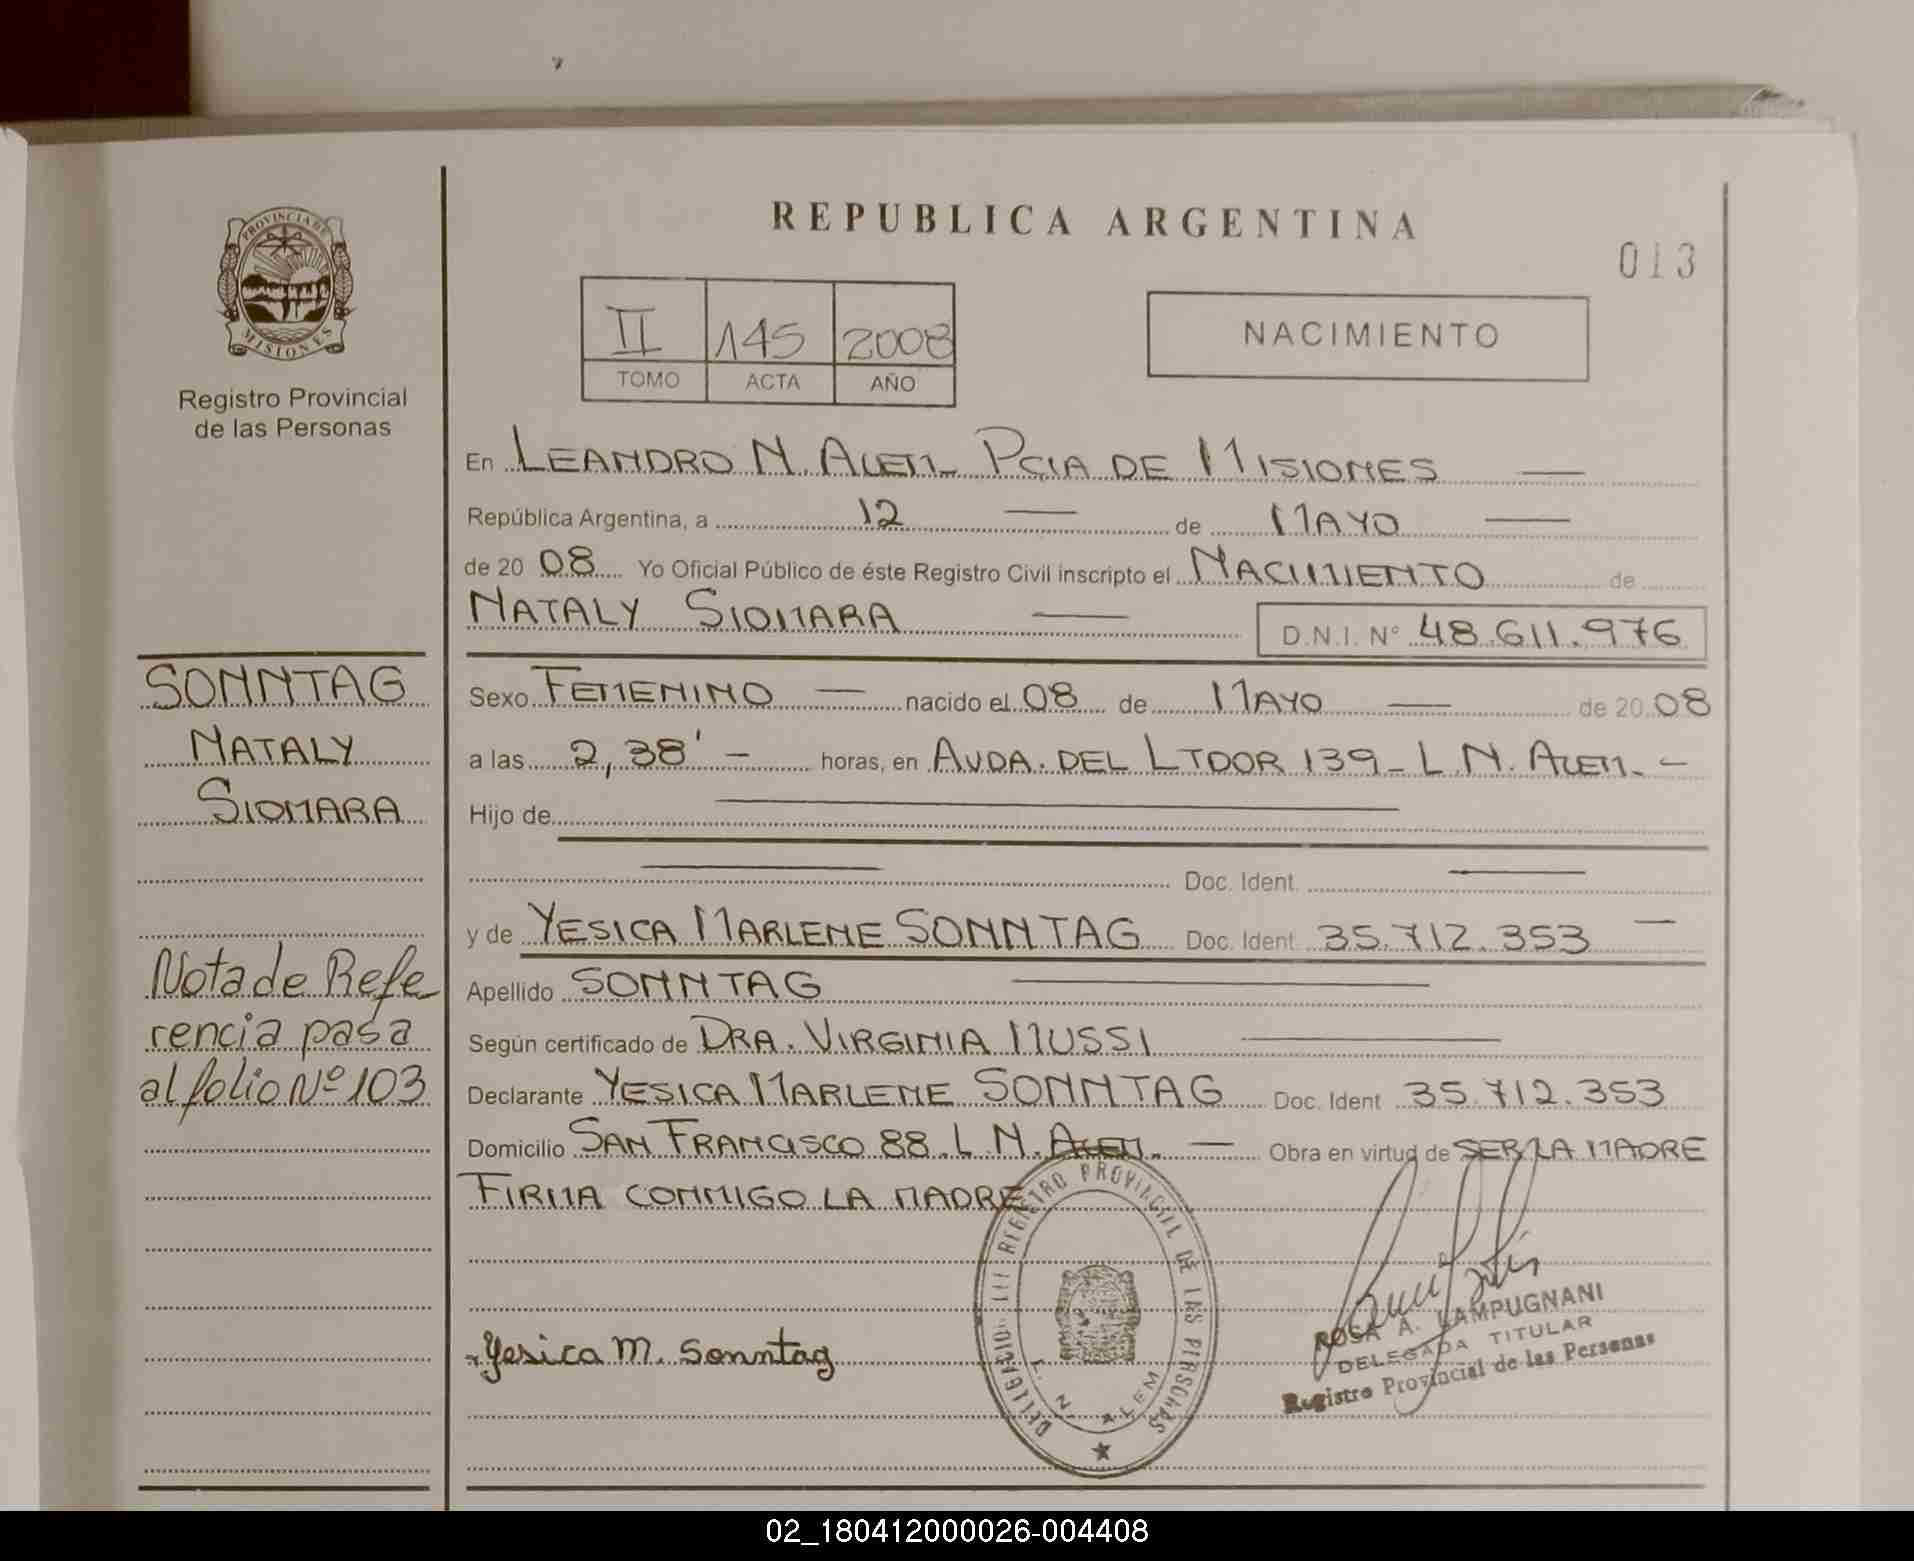 REPUBLICA ARGENTINA
013
PROVINCIA DE
MISIONES
Registro Provincial
de las Personas
II 145 2008
TOMO ACTA AÑO
NACIMIENTO
En LEANDRO N. ALEM_ PCIA DE MISIONES —
República Argentina, a 12 — de MAYO —
de 20 08 Yo Oficial Público de éste Registro Civil inscripto el NACIMIENTO de
NATALY SIOMARA — D.N.I. N° 48.611.976
SONNTAG
NATALY
SIOMARA
Nota de Refe
rencia pasa
al folio Nº 103
Sexo FEMENINO — nacido el 08 de MAYO — de 20 08
a las 2,38' - horas, en AVDA. DEL LTDOR 139_ L N. ALEM. -
Hijo de —
— Doc. Ident. —
y de YESICA MARLENE SONNTAG Doc. Ident. 35.712.353 —
Apellido SONNTAG —
Según certificado de DRA. VIRGINIA MUSSI —
Declarante YESICA MARLENE SONNTAG Doc. Ident 35.712.353
Domicilio SAN FRANCISCO 88. L N. ALEM. — Obra en virtud de SER LA MADRE
FIRMA CONMIGO LA MADRE
Yesica M. Sonntag
REGISTRO PROVINCIAL DE LAS PERSONAS
L. N. ALEM
ROSA A. LAMPUGNANI
DELEGADA TITULAR
Registro Provincial de las Personas
02_180412000026-004408